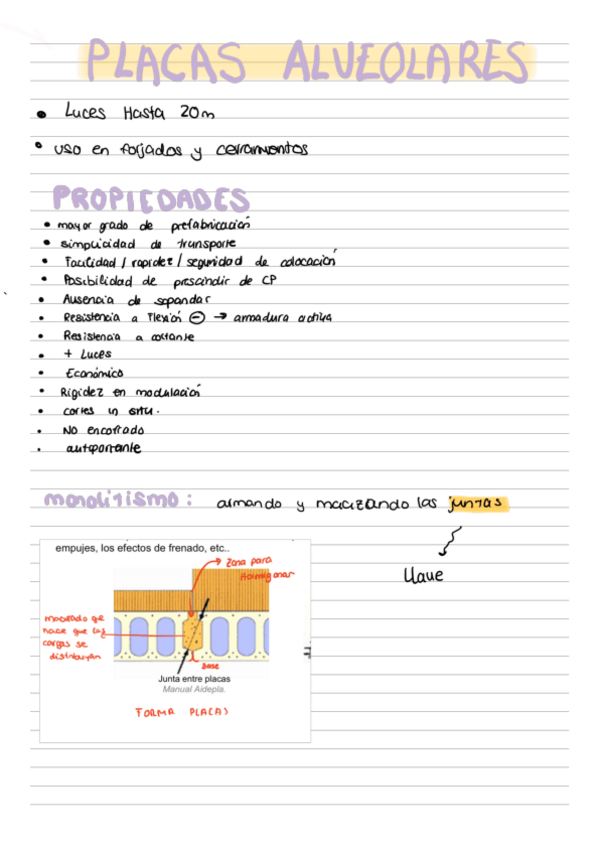 PLACAS ALVEOLARES
• Luces Hasta 20m
• uso en forjados y cerramientos
PROPIEDADES
• mayor grado de prefabricación
• simplicidad de transporte
• Facilidad / rapidez / seguridad de colocación
• Posibilidad de prescindir de CP
• Ausencia de sopandar
• Resistencia a Flexión ⊖ → armadura activa
• Resistencia a cortante
• + Luces
• Económico
• Rigidez en modulación
• cortes in situ.
• NO encofrado
• autoportante
monolitismo: armando y macizando las juntas
Llave
empujes, los efectos de frenado, etc..
Zona para
Hormigonar
macizado que
hace que las
cargas se
distribuyan
Base
Junta entre placas
Manual Aidepla.
FORMA PLACAS